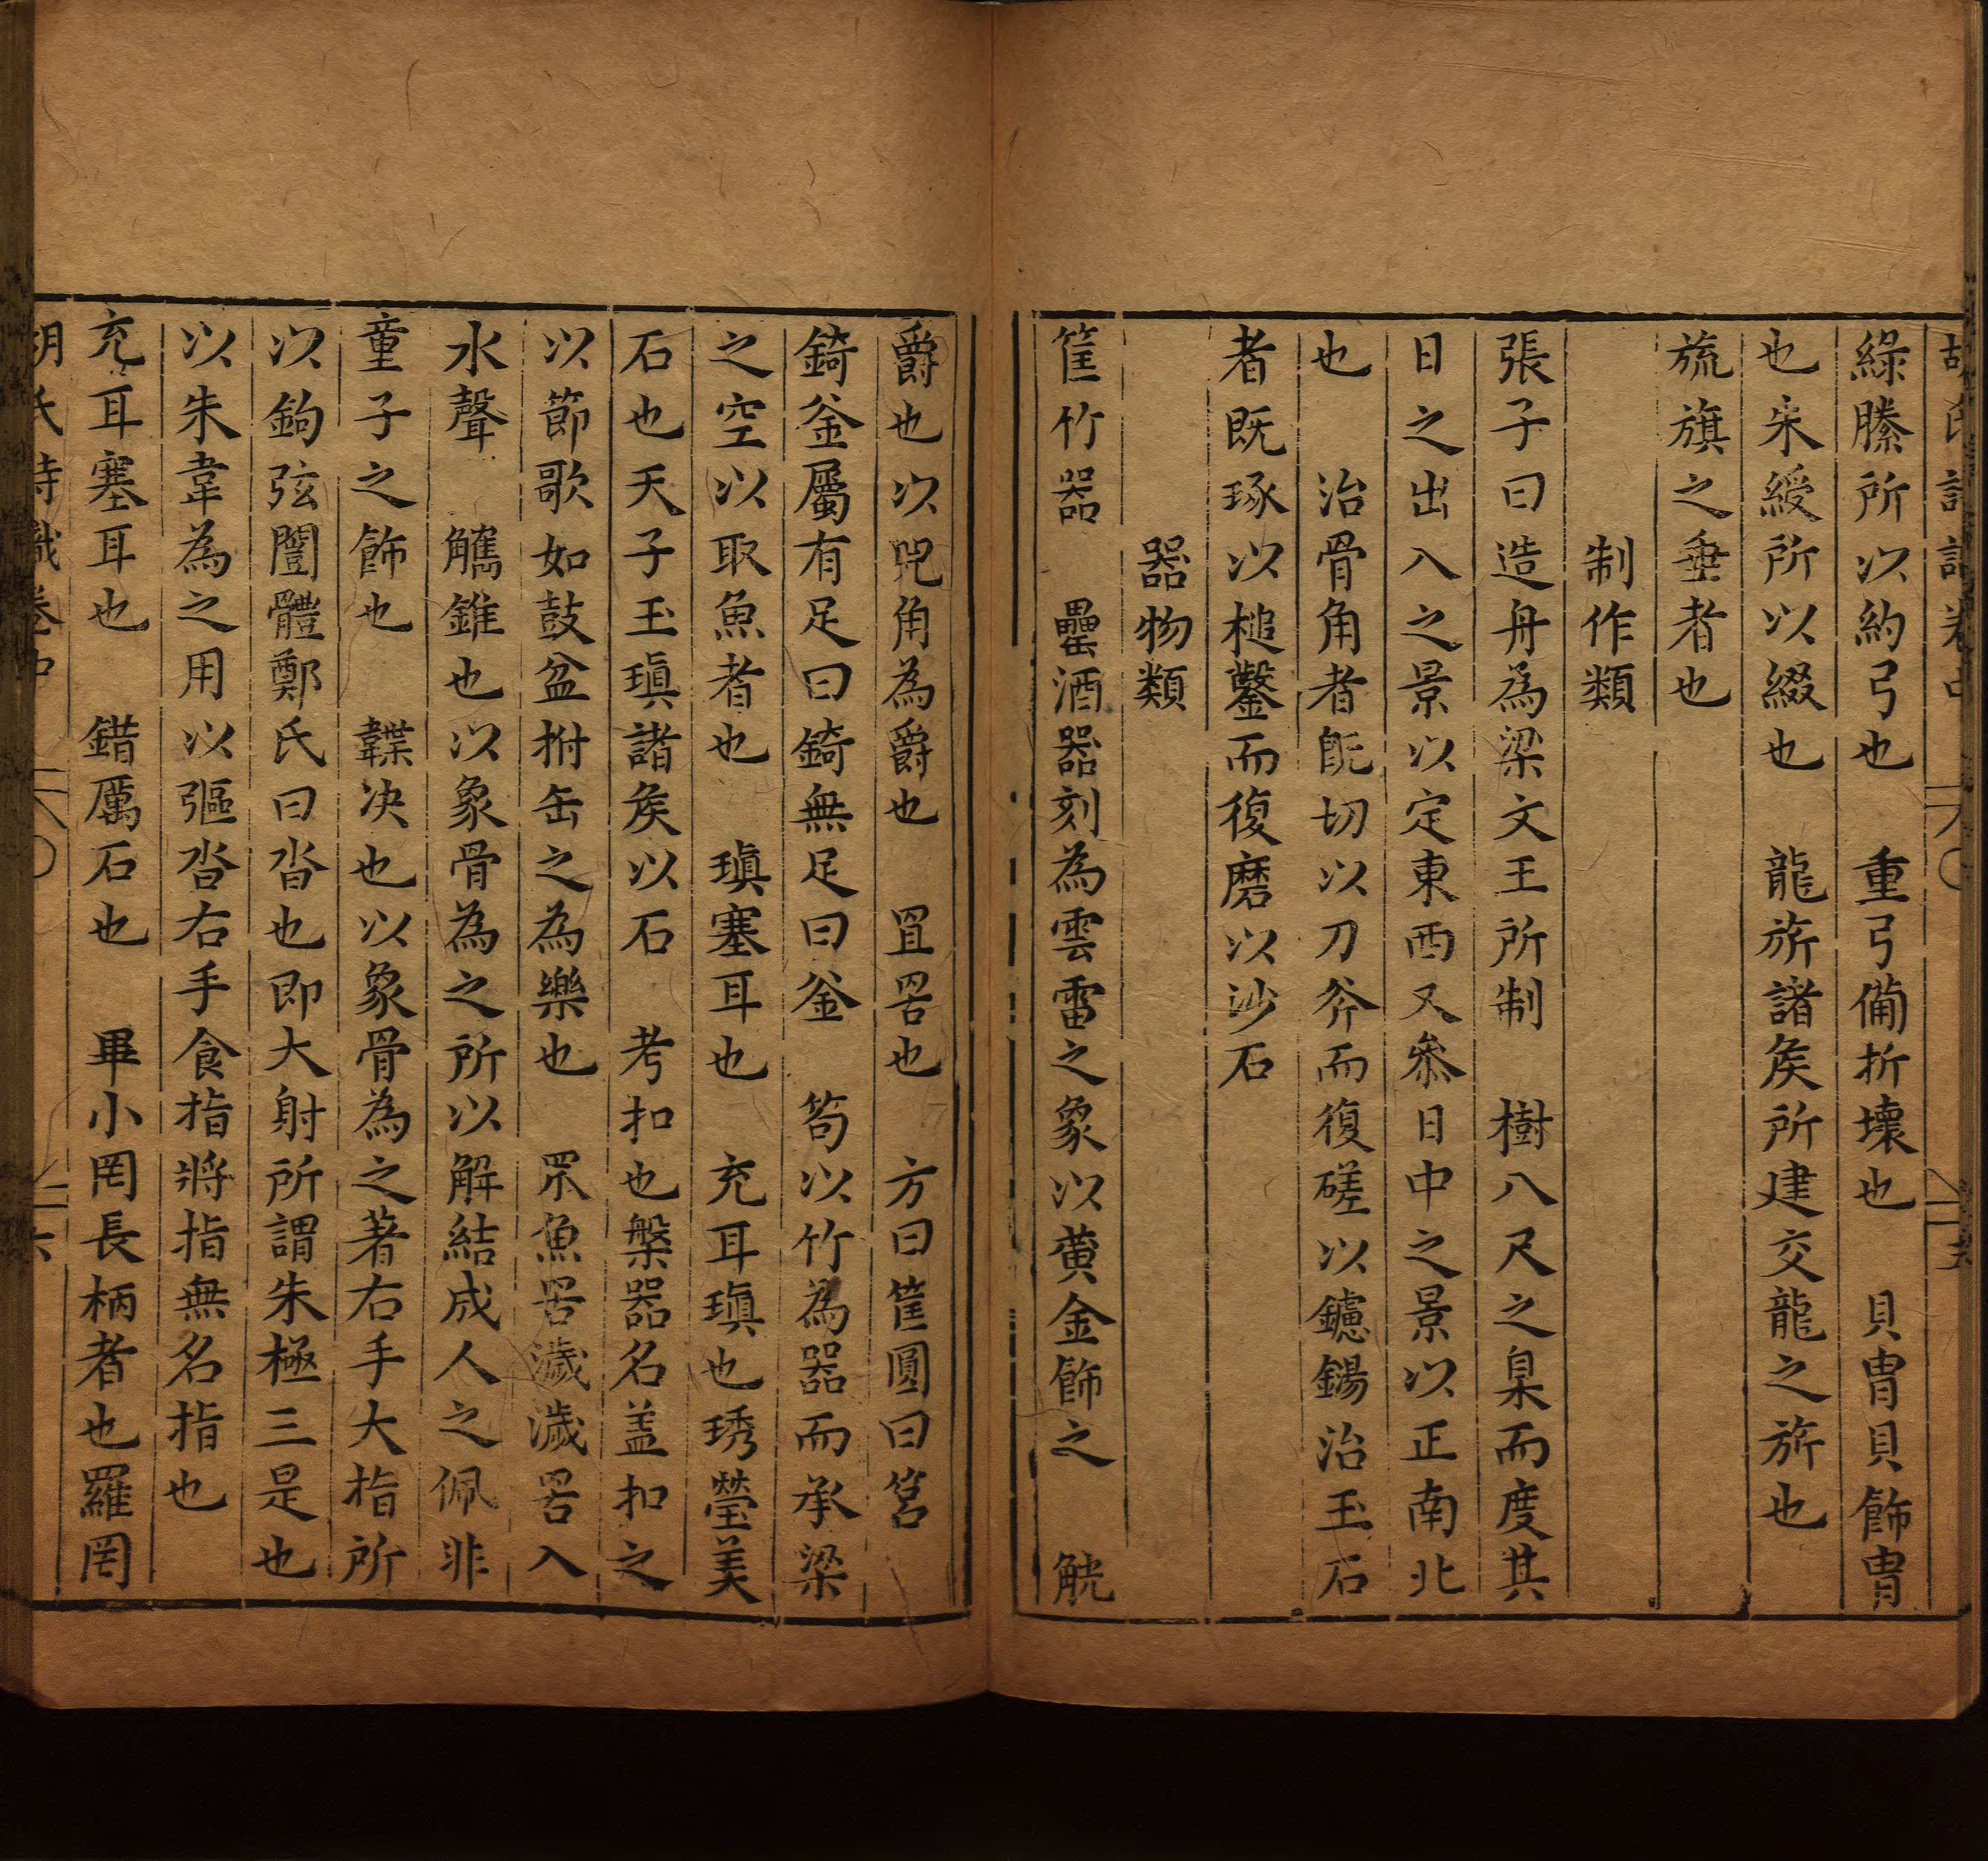 綠縢所以約弓也　重弓備折壞也　貝冑貝飾冑
也朱綬所以綴也　龍旂諸矦所建交龍之旂也
旒旗之垂者也
制作類
張子曰造舟為梁文王所制　樹八尺之臬而度其
日之出入之景以定東西又叅日中之景以正南北
也　治骨角者旣切以刀斧而復磋以鑢鐋治玉石
者既琢以槌鑿而復磨以沙石
器物類
筐竹器　罍酒器刻為雲雷之象以黄金飾之　觥
爵也以兕角為爵也　罝罟也　方曰筐圓曰筥
錡釜屬有足曰錡無足曰釜　笱以竹為器而承梁
之空以取魚者也　瑱塞耳也　充耳瑱也琇瑩美
石也天子玉瑱諸矦以石　考扣也槃器名盖扣之
以節歌如鼓盆拊缶之為樂也　罛魚罟濊濊罟入
水聲　觿錐也以象骨為之所以解結成人之佩非
童子之飾也　韘决也以象骨為之著右手大指所
以鉤弦闓體鄭氏曰沓也即大射所謂朱極三是也
以朱韋為之用以彄沓右手食指將指無名指也
充耳塞耳也　錯厲石也　畢小罔長柄者也羅罔
胡氏詩識卷中　六